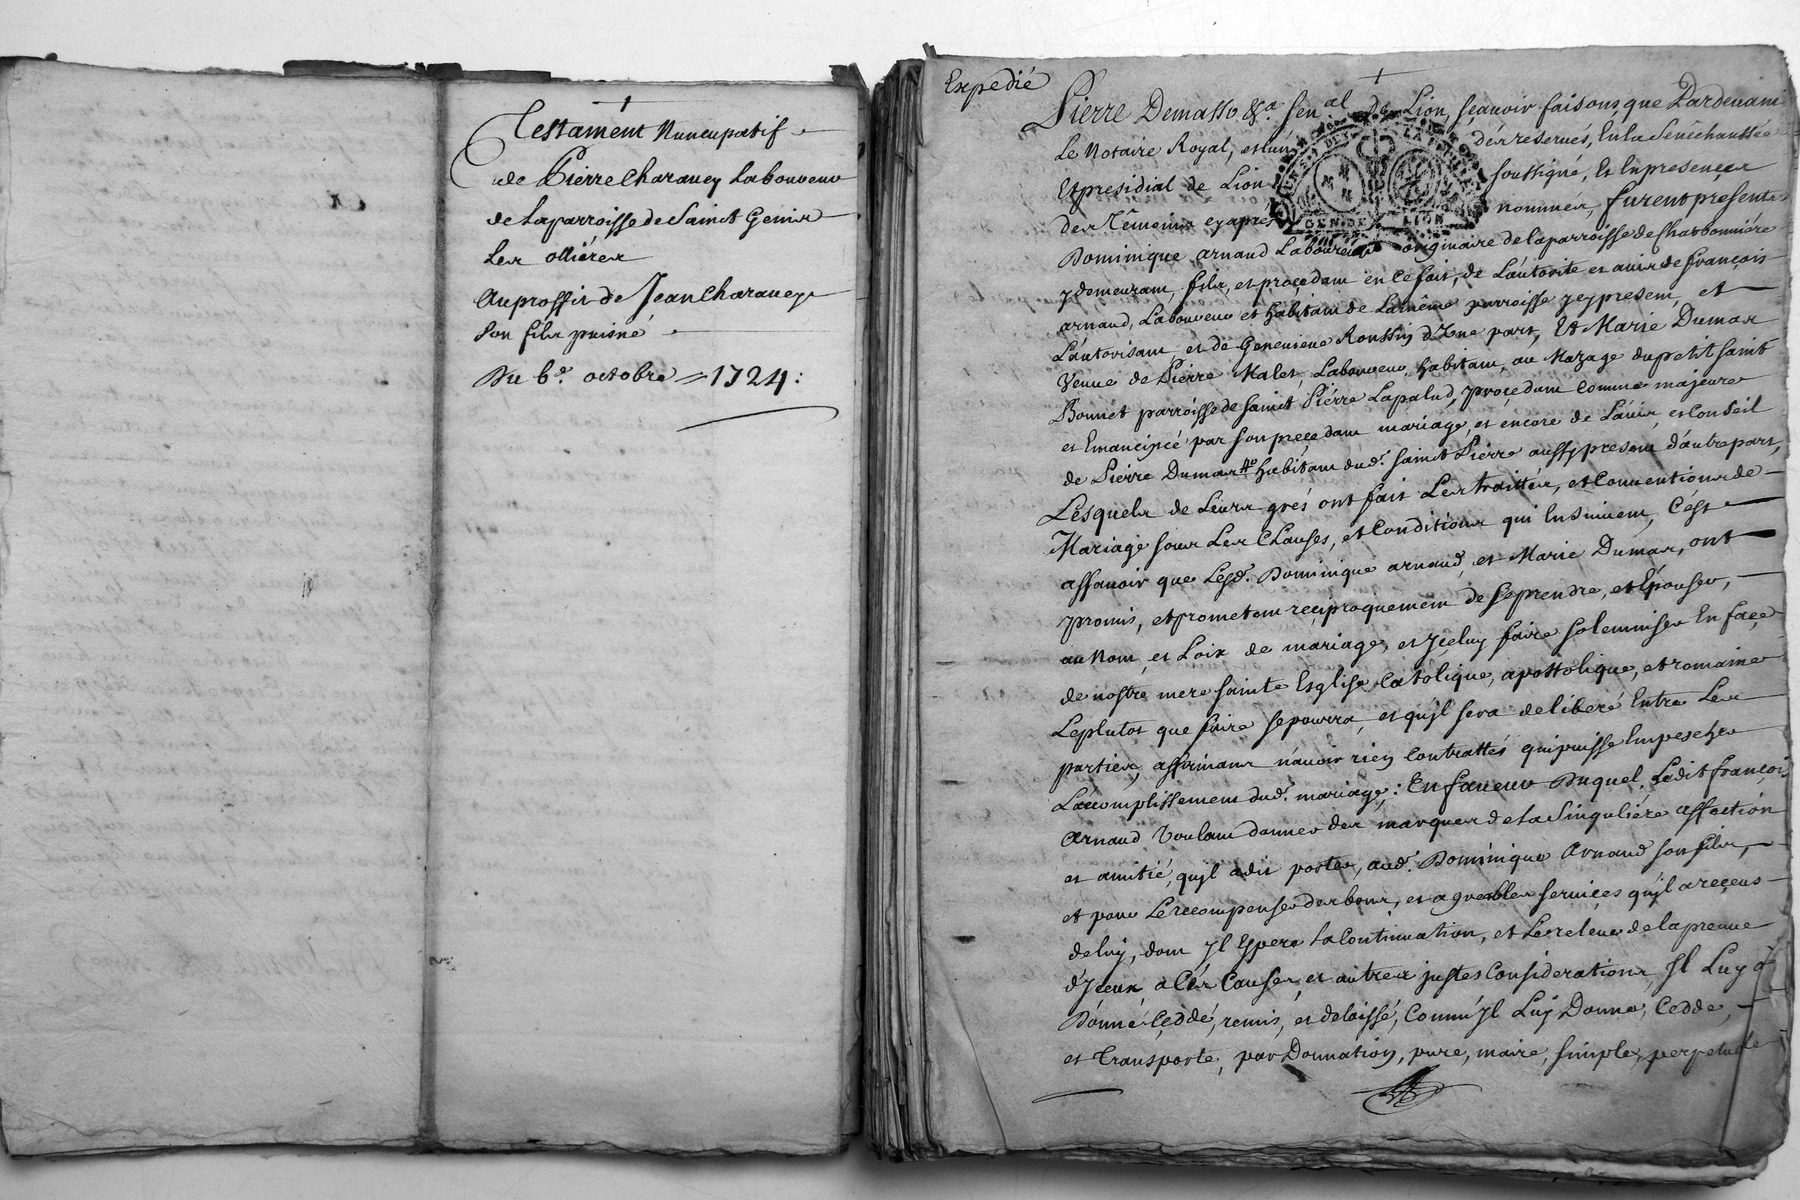 Testament Nuncupatif
de Pierre Charauey Laboureur
de Laparroisse de Sainct Genis
Les olliéres
Auproffit de Jean Charauey
Son fils puisné
Du 6e. octobre = 1724:
Expedié
Pierre Demasso &a. Senal. de Lion, sçauoir faisons que Pardeuant
Le Notaire Royal, et des reserués, En la Senéchaussée
Et presidial de Lion soussigné, Et En presence
des Témoins cy apres nommés, furent presents
Dominique arnaud Laboureur originaire de la parroisse de Charbonniére
y demeurant, fils, et procedant en ce fait, de L'autorité et auis de françois
arnaud, Laboureur et habitant de La même parroisse jcy present, et
L'autorisant et de Geneuieue Roussin d'Une part, Et Marie Dumas
Veuue de Pierre Malet, Laboureur, habitant, au Mazage du petit saint
Bonnet parroisse de sainct Piérre Lapalud, procedant comme majeure
et Emancipée par son precedant mariage, et encore de L'auis, et Conseil
de Pierre Dumas habitant dud. sainct Pierre aussy present d'autre part,
Lesquels de Leurs grés ont fait Les traittés, et Conuentions de
Mariage sous Les Clauses, et Conditions qui Ensuiuent, C'est
assauoir que Lesd. Dominique arnaud, et Marie Dumas, ont
promis, et prometent reciproquement de se prendre, et Epouser,
au Nom, et Loix de mariage, et Jceluy faire solemniser En façe
de nostre mere sainte Esglise Catolique, apostolique, et romaine
Le plutot que faire se pourra, et qu'jl sera deliberé Entre Les
parties, affirmans n'auoir rien contrattés qui puisse Empescher
L'accomplissement dud. mariage: En faueur Duquel, Ledit françois
Arnaud Voulant donner des marques de La Singuliére affection
et amitié, qu'jl a dit porter, aud. Dominique Arnaud son fils,
et pour Le recompenser des bons, et agreables seruices qu'jl a reçeus
de luy, dont Jl Espere La Continuation, et Le releue de la preuue
d'Jceux a Cés Causes, et autres justes Considerations, Jl Luy à
Donné Ceddé, remis, et delaissé, Comm'Jl Luy Donne, Cedde,
et Transporte, par Donnation, pure, simple, perpetuele